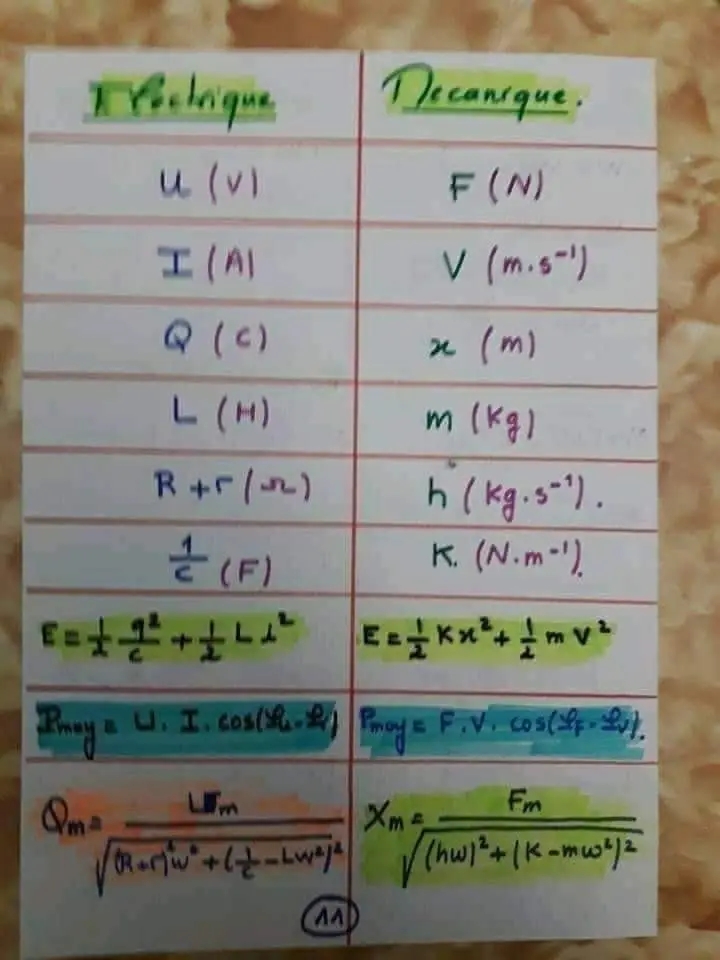 Electrique | Mécanique.
U (V) | F (N)
I (A) | V (m.s⁻¹)
Q (C) | x (m)
L (H) | m (Kg)
R + r (Ω) | h (Kg.s⁻¹).
1/C (F) | K. (N.m⁻¹).
E = 1/2 q²/C + 1/2 L i² | E = 1/2 K x² + 1/2 m V²
Pmoy = U. I. cos(φu - φi) | Pmoy = F.V. cos(φF - φV).
Qm = Um / √((R+r)²w² + (1/C - Lw²)² | Xm = Fm / √((hw)² + (K - mw²)²
11